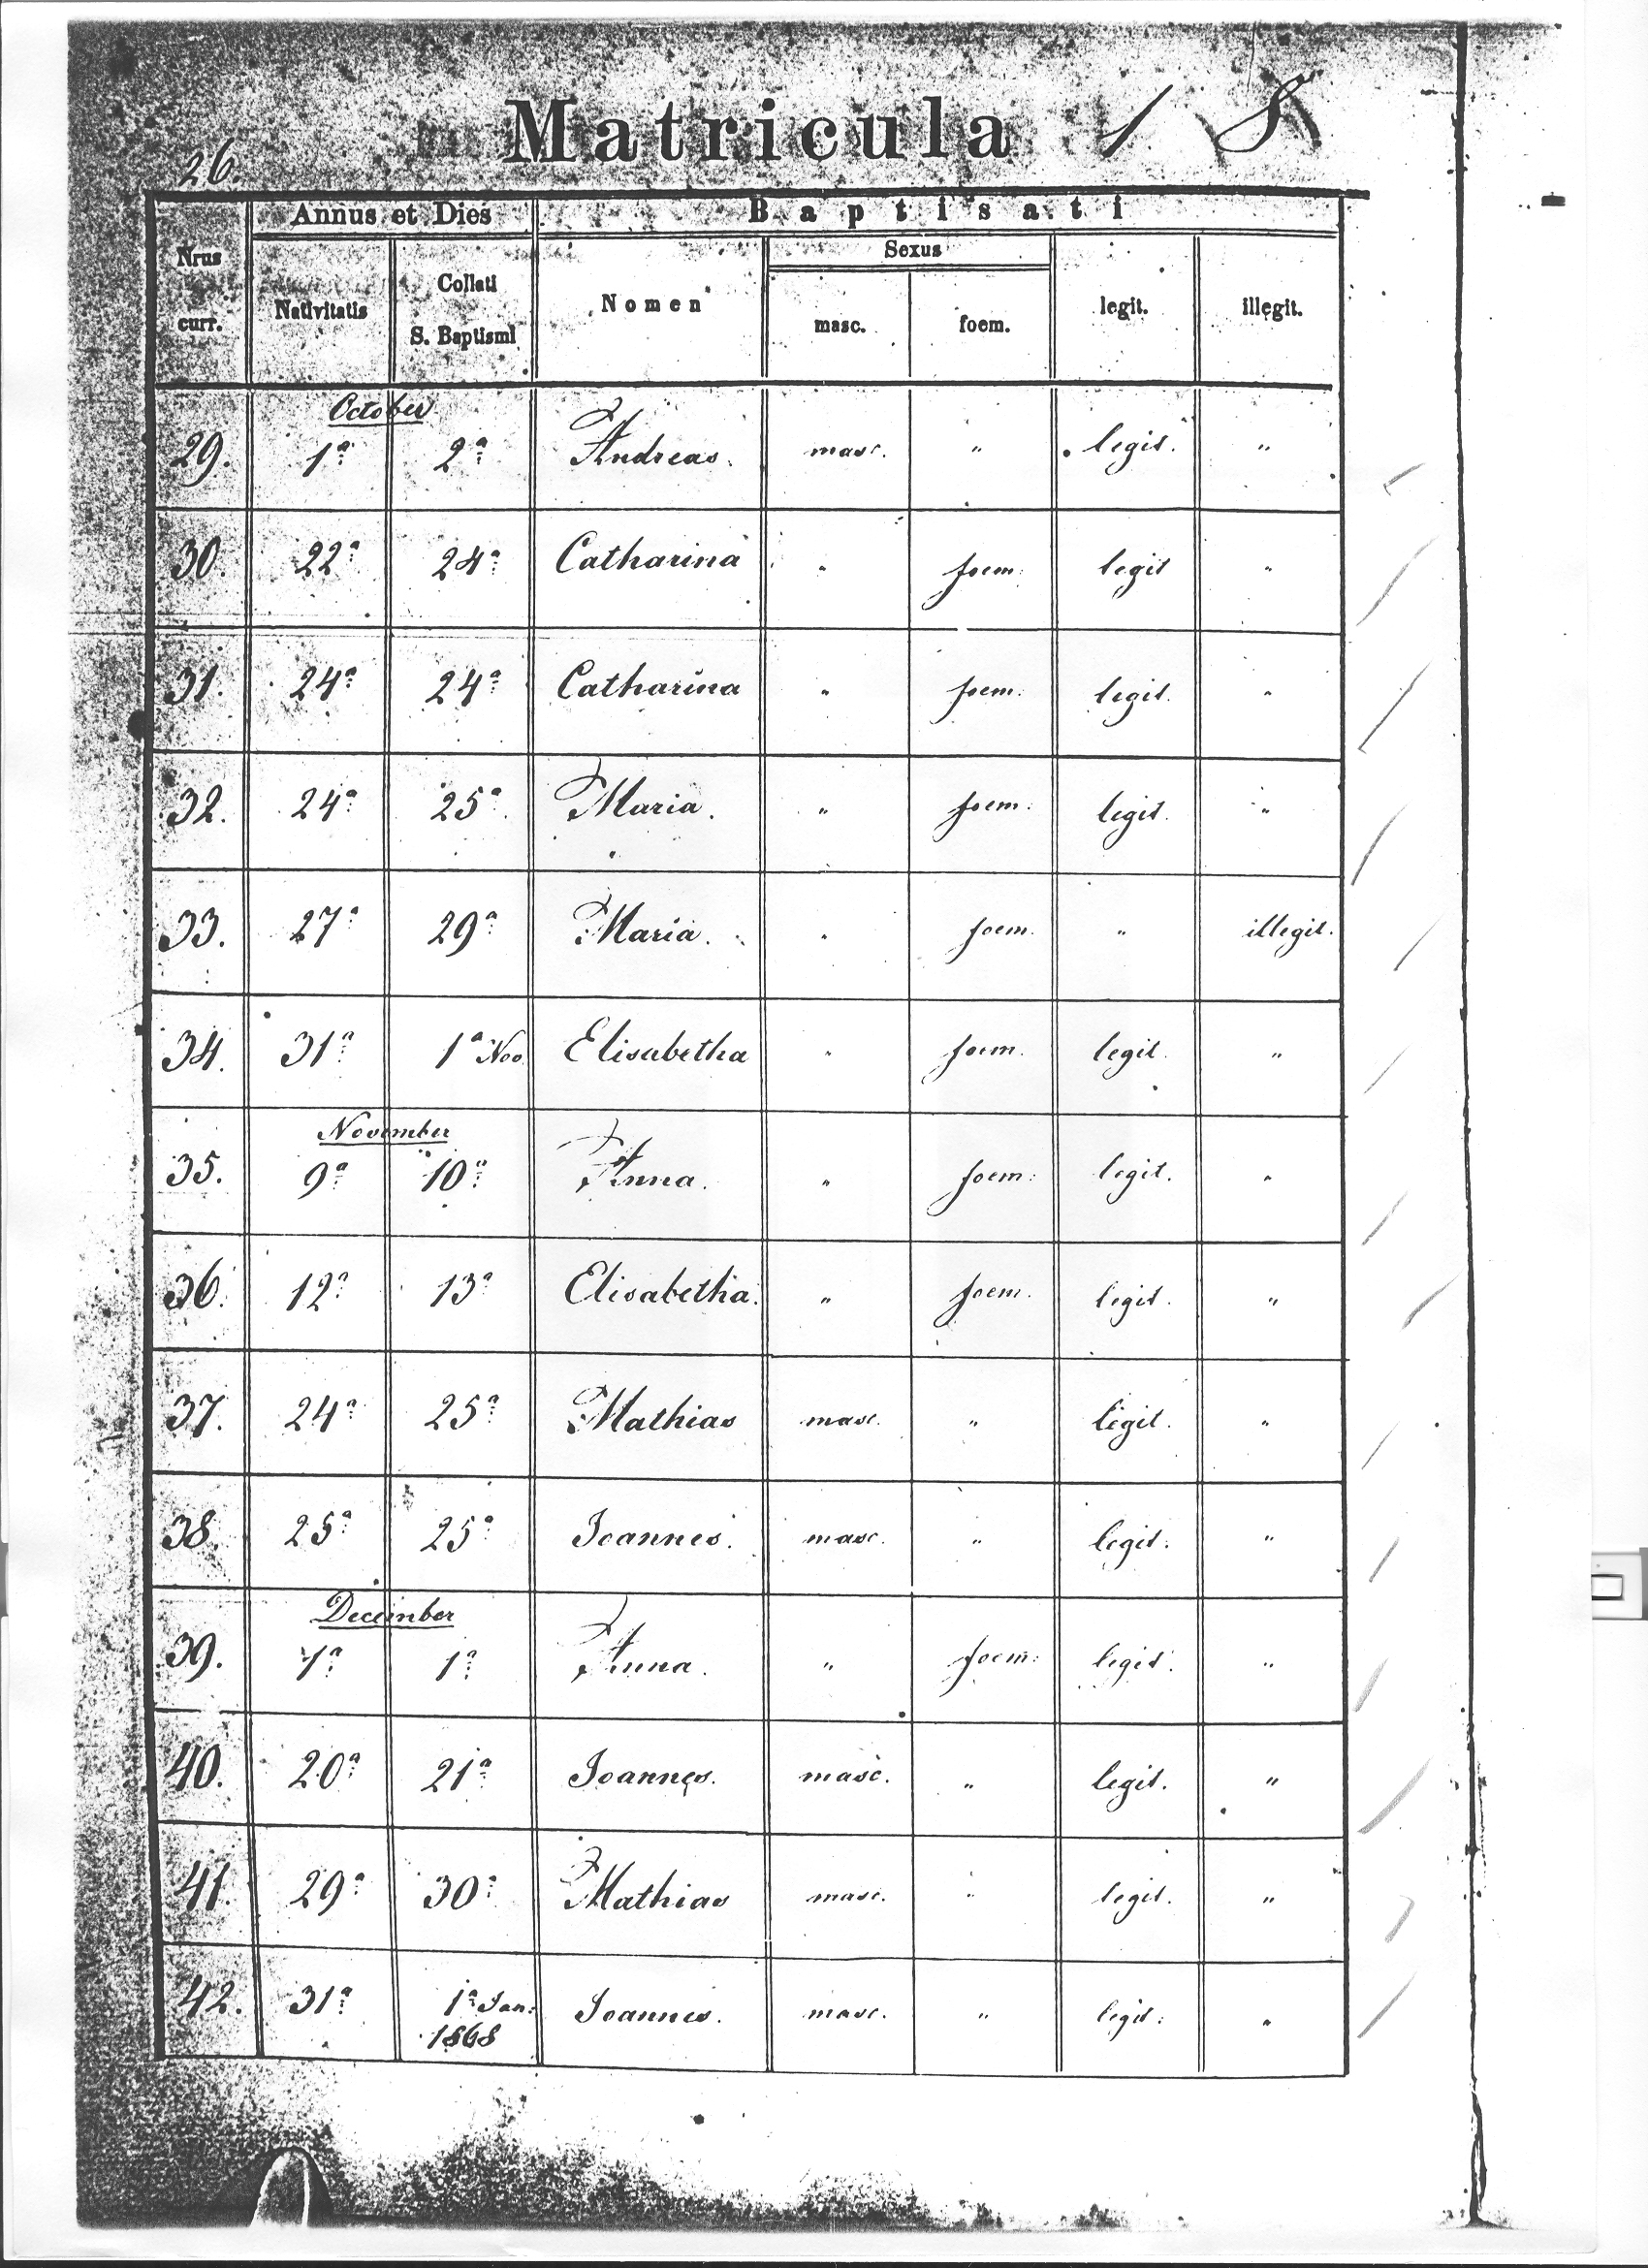 Matricula 1 8
26.
Annus et Dies Baptisati
Nrus curr. Nativitatis Collati S. Baptismi Nomen Sexus masc. foem. legit. illegit.
October
29. 1a 2a Andreas. masc. " legit. "
30. 22a 24a Catharina " foem: legit "
31. 24a 24a Catharina " foem. legit. "
32. 24a 25a Maria. " foem. legit. "
33. 27a 29a Maria. " foem. " illegit.
34. 31a 1a Nov. Elisabetha " foem. legit. "
November
35. 9a 10a Anna. " foem: legit. "
36. 12a 13a Elisabetha. " foem. legit. "
37. 24a 25a Mathias masc. " legit. "
38. 25a 25a Joannes. masc. " legit. "
December
39. 1a 1a Anna. " foem: legit. "
40. 20a 21a Joannes. masc. " legit. "
41. 29a 30a Mathias masc. " legit. "
42. 31a 1a Jan: 1868 Joannes. masc. " legit: "